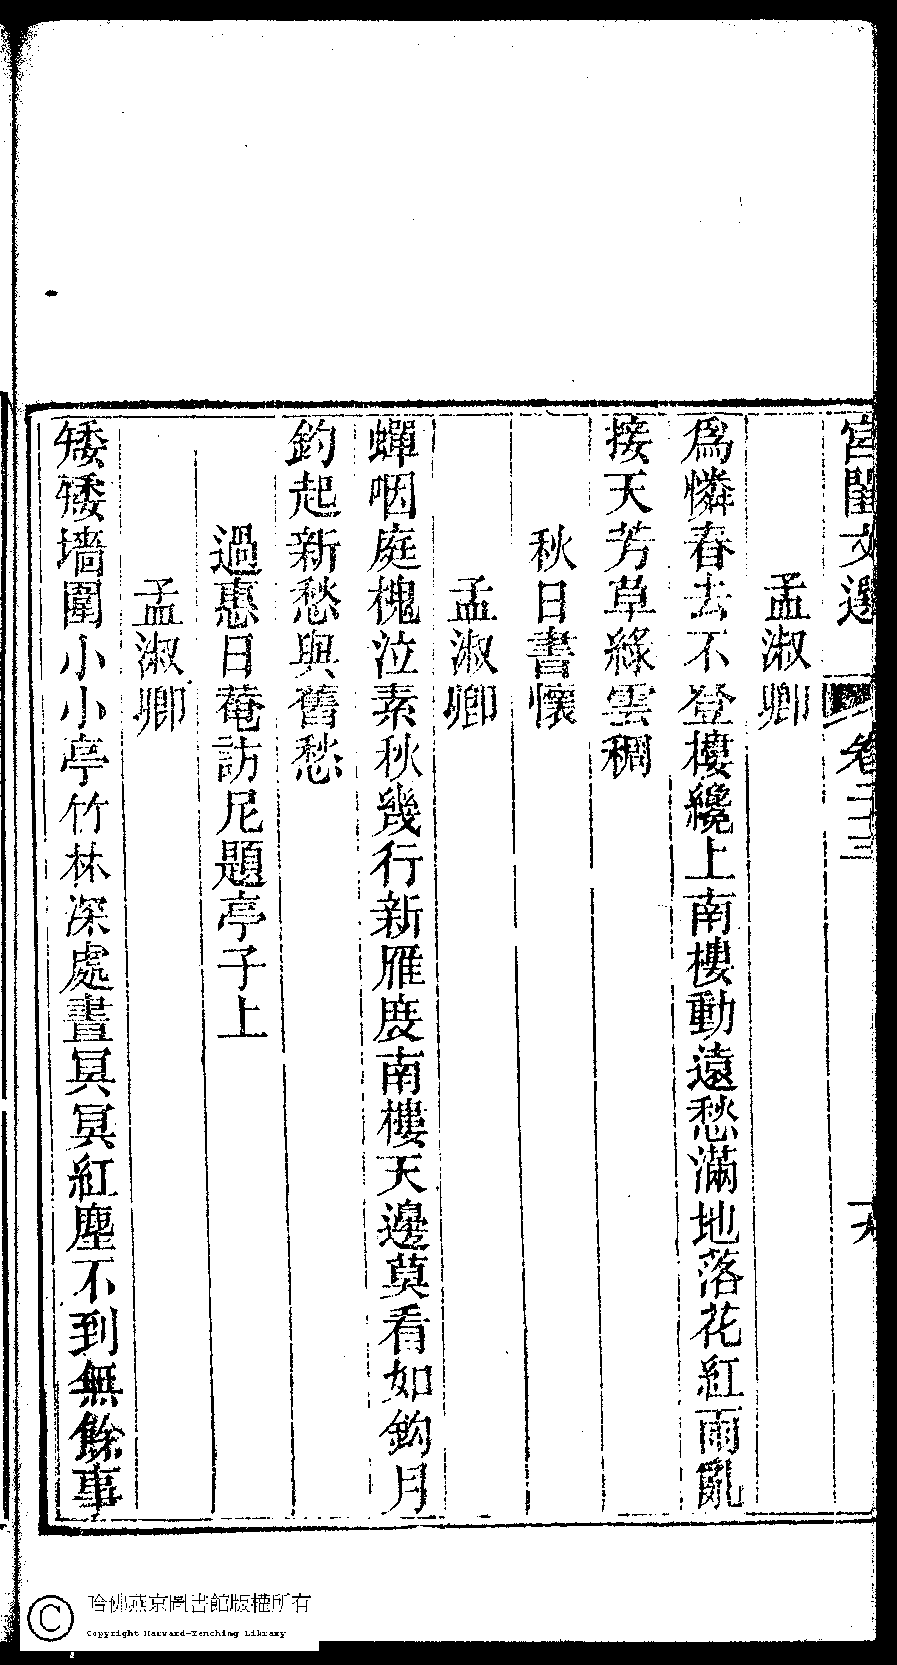 宮閨文選 卷二十三 十八
孟淑卿
爲憐春去不登樓纔上南樓動遠愁滿地落花紅雨亂
接天芳草綠雲稠
秋日書懷
孟淑卿
蟬咽庭槐泣素秋幾行新雁度南樓天邊莫看如鈎月
鈎起新愁與舊愁
過惠日菴訪尼題亭子上
孟淑卿
矮矮墻圍小小亭竹林深處晝冥冥紅塵不到無餘事
哈佛燕京圖書館版權所有
Copyright Harvard-Yenching Library